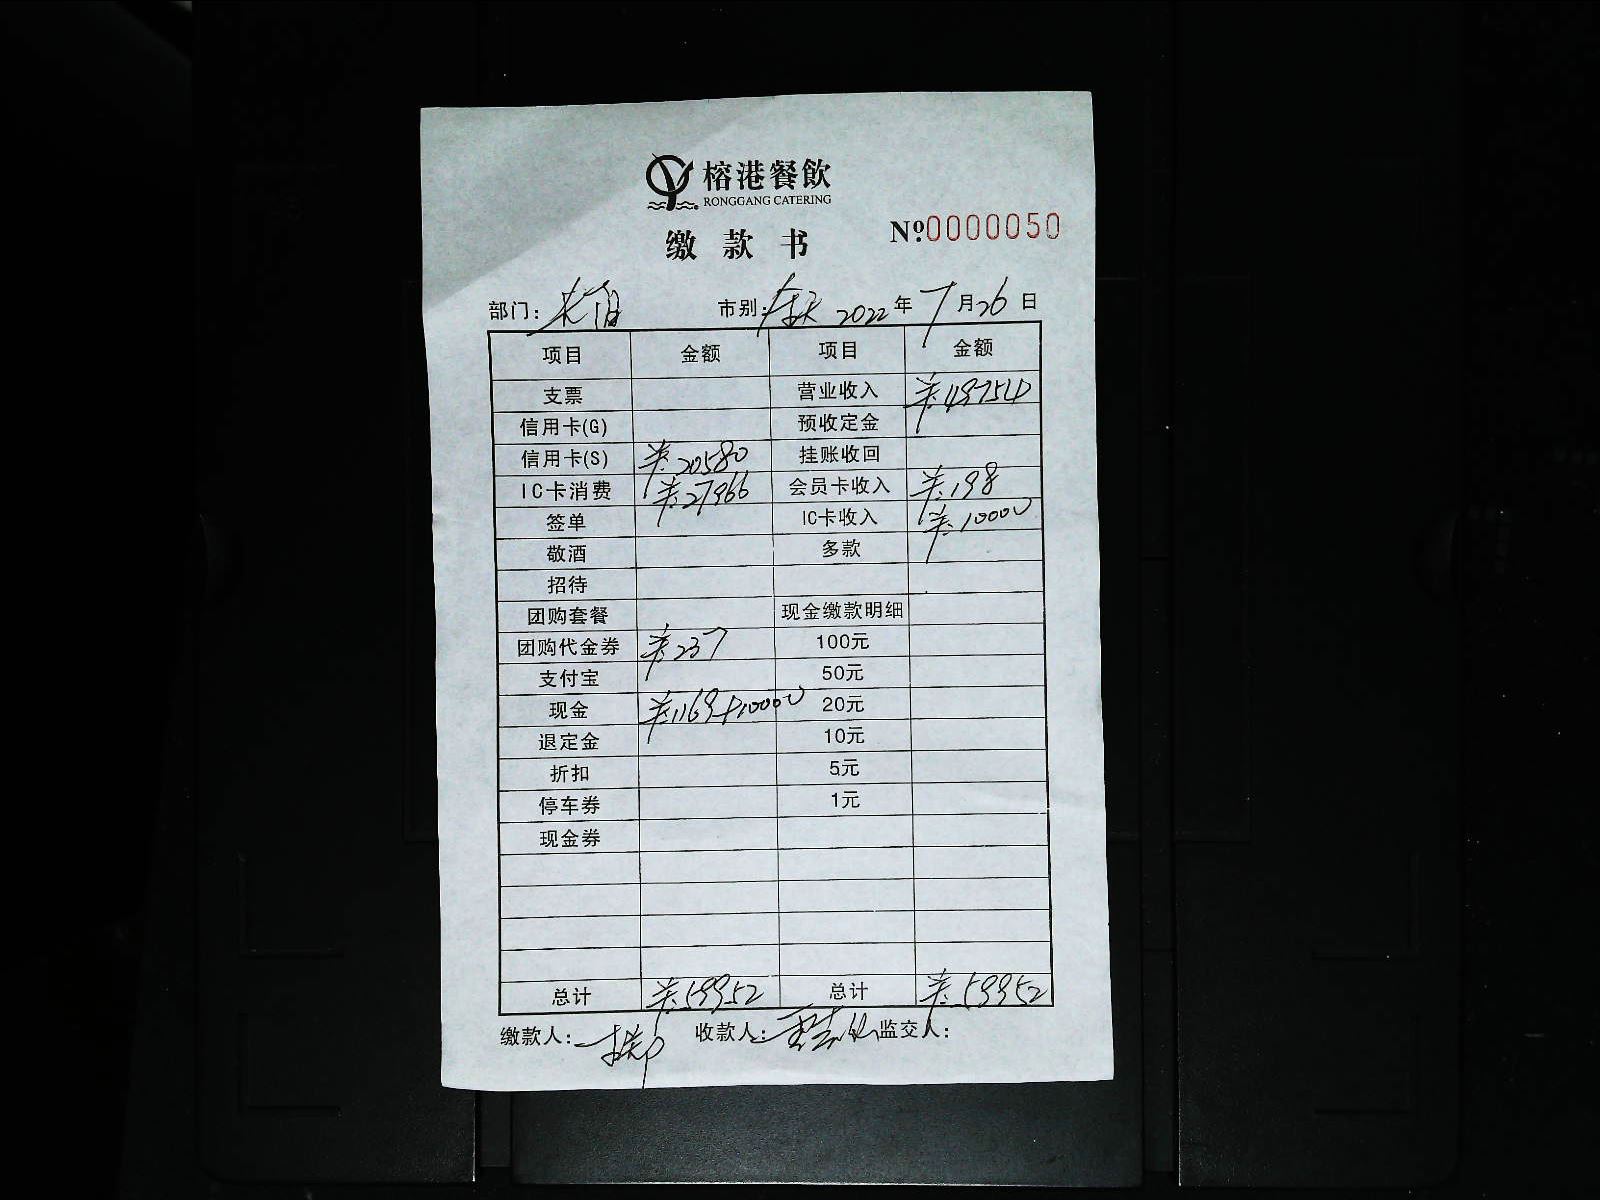 榕港餐飲
RONGGANG CATERING
缴款书
Nº.0000050
部门： 市别：全天 2022年7月26日
项目 金额 项目 金额
支票 营业收入 ¥:49754
信用卡(G) 预收定金
信用卡(S) ¥:20580 挂账收回
IC卡消费 ¥:27966 会员卡收入 ¥:198
签单 IC卡收入 ¥:10000
敬酒 多款
招待
团购套餐 现金缴款明细
团购代金券 ¥:237 100元
支付宝 50元
现金 ¥:1169+10000 20元
退定金 10元
折扣 5元
停车券 1元
现金券
总计 ¥:59952 总计 ¥:59952
缴款人： 收款人： 监交人：